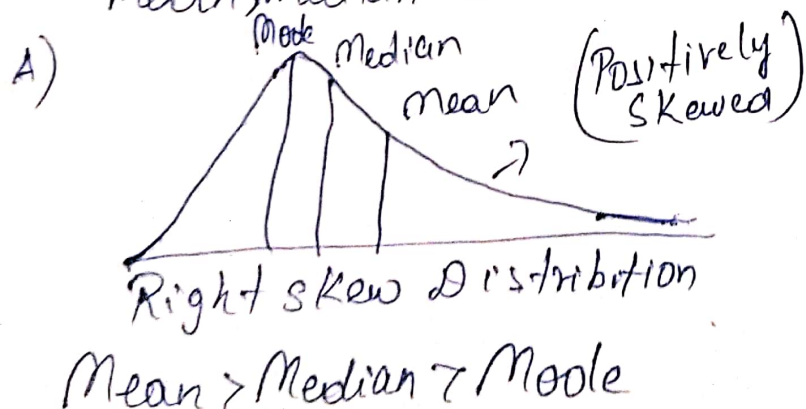 Mode
A) Median (Positively
Mean Skewed)
Right skew Distribution
Mean > Median > Mode